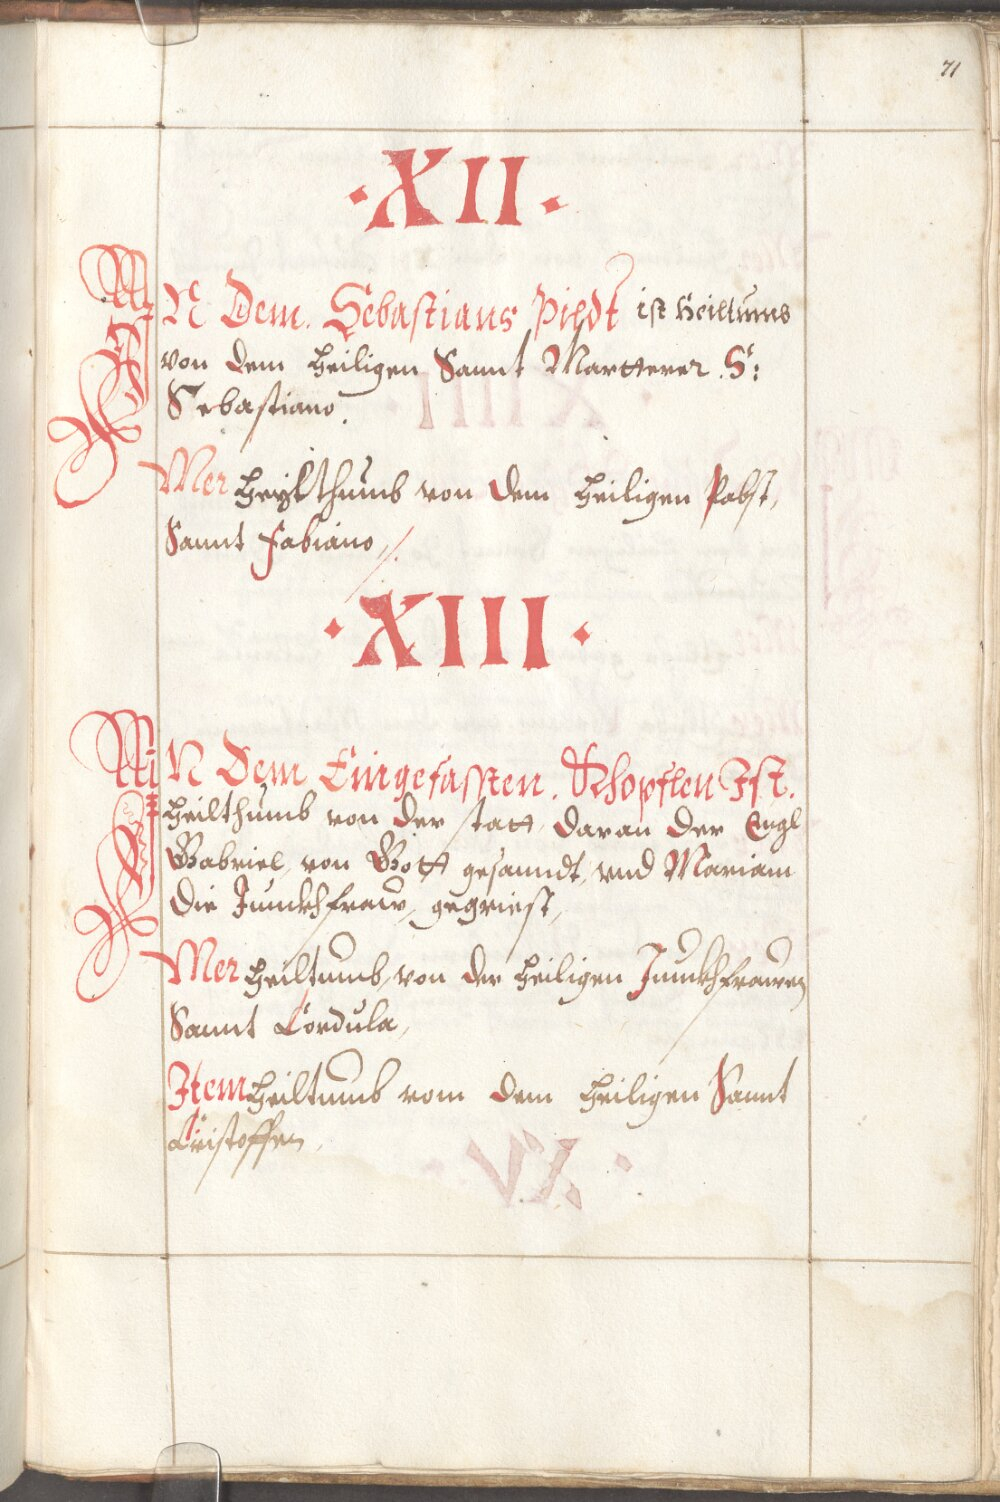 71
·XII·
IN Dem. Sebastians Pildt ist Heiltumb
von dem heiligen Sannt Martterer. S:
Sebastiano.
Mer heylthumb von dem heiligen Pabst,
Sannt Fabiano,
·XIII·
IN Dem Eingefassten. Schopflen Ist.
heilthumb von der statt, daran der Engl
Gabriel, von Gott gesanndt, vnd Mariam
die Junckhfraw, gegriest,
Mer heiltumb, von der heiligen Junckhfrawen
Sannt Cordula,
Item heiltumb vom dem heiligen Sannt
Cristoffen,